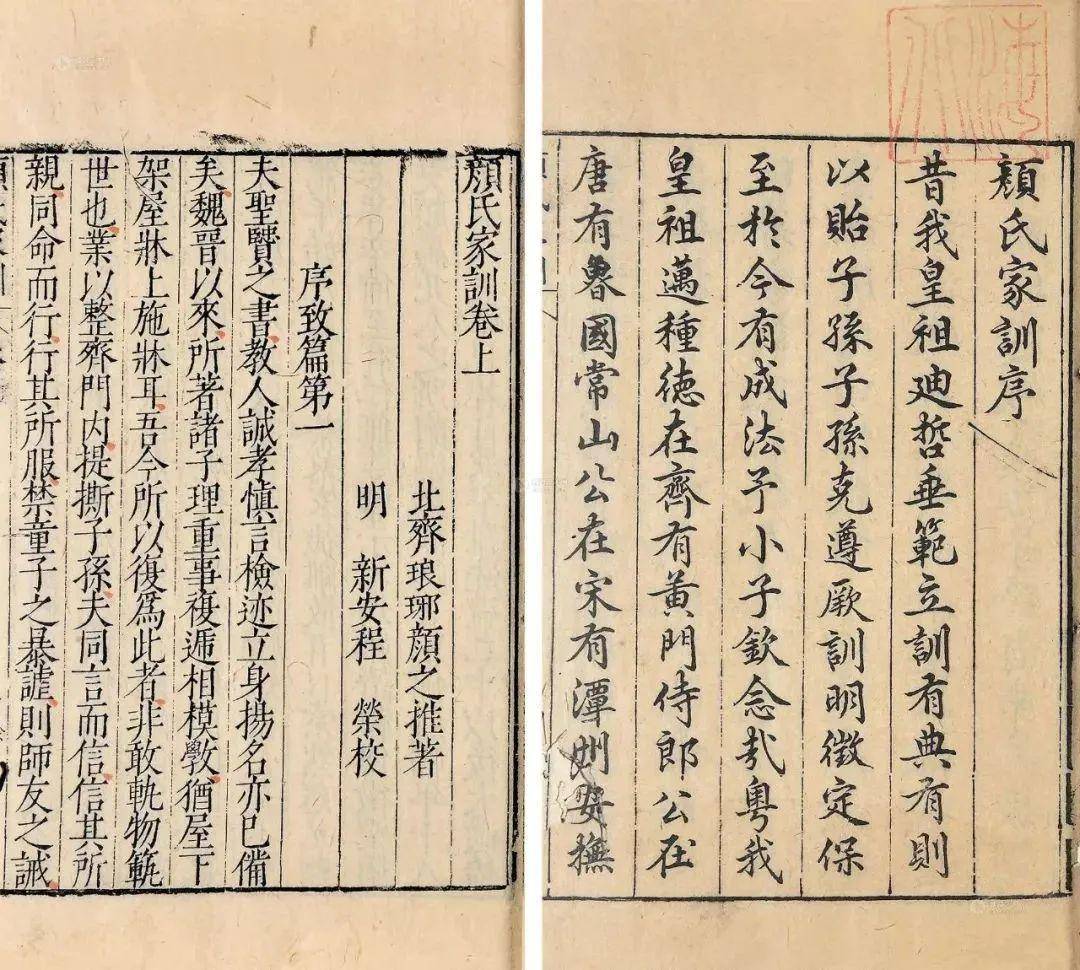 顔氏家訓序
昔我皇祖廸哲垂範立訓有典有則
以貽子孫子孫克遵厥訓明徵定保
至於今有成法予小子欽念哉粤我
皇祖邁種徳在齊有黃門侍郎公在
唐有魯國常山公在宋有潭州安撫
顔氏家訓卷上
北齊琅琊顔之推著
明 新安程 榮校
序致篇第一
夫聖贒之書教人誠孝慎言檢迹立身揚名亦已備
矣魏晉以來所著諸子理重事複遞相模斆猶屋下
架屋牀上施牀耳吾今所以復爲此者非敢軌物範
世也業以整齊門内提撕子孫夫同言而信信其所
親同命而行行其所服禁童子之暴謔則師友之誡